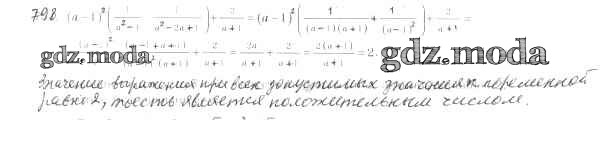 798. (a−1)²(1/(a²−1) + 1/(a²−2a+1)) + 2/(a+1) = (a−1)²(1/((a−1)(a+1)) + 1/(a−1)²) + 2/(a+1) =
gdz.moda = 2a/(a+1) + 2/(a+1) = 2(a+1)/(a+1) = 2. gdz.moda
Значение выражения при всех допустимых значениях переменной
равно 2, то есть является положительным числом.